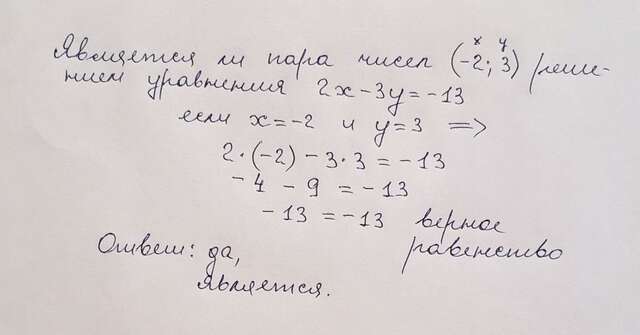 Является ли пара чисел (-2; 3) реше-
x y
нием уравнения 2x-3y=-13
если x=-2 и y=3 =>
2·(-2)-3·3=-13
-4-9=-13
-13=-13 верное
равенство
Ответ: да,
является.